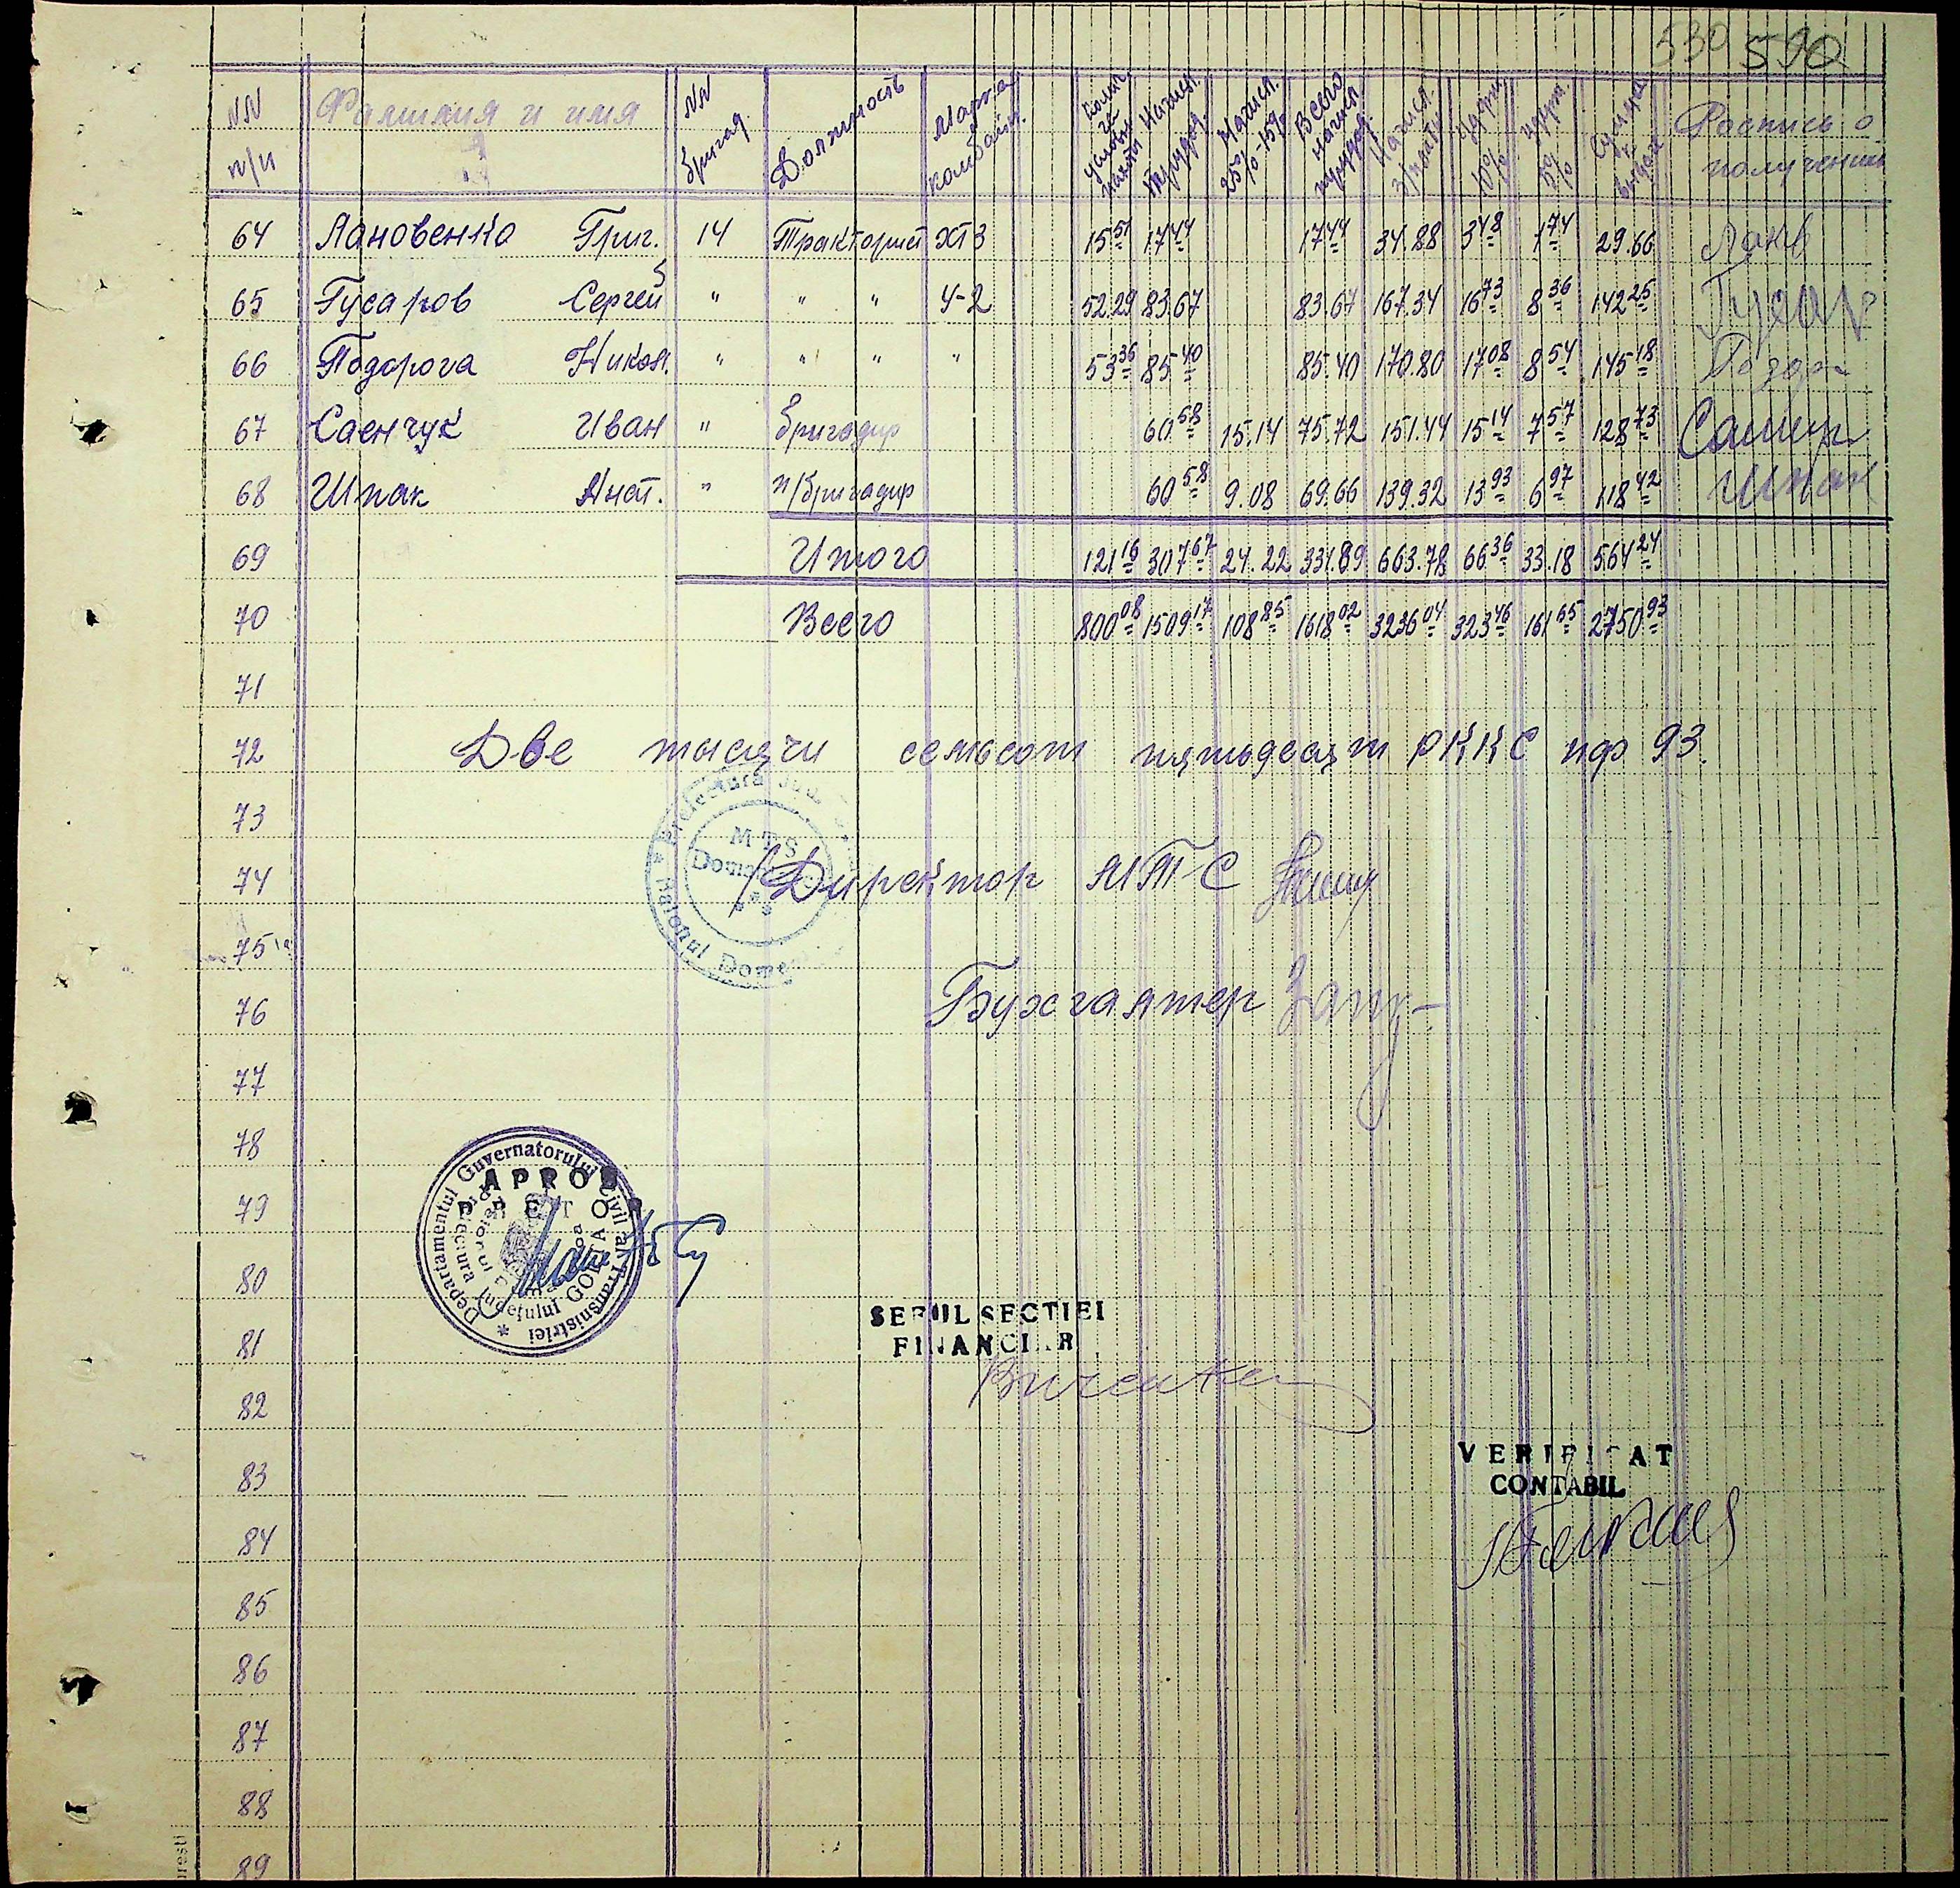 530 590
NN п/п Фамилия и имя NN бригад Должность Марка комбайн. Колич. га условн. пахоты Начисл. трудод. Начисл. 25% - 15% Всего начисл. трудод. Начисл. з/платы Удерж. 10% Удерж. 5% Сумма к выдаче Роспись о получении
64 Лановенко Григ. 14 Тракторист ХТЗ 15.51 17.44 17.44 34.88 3.48 1.74 29.66 Ланов
65 Гусаров Сергей " " " У-2 52.29 83.67 83.67 167.34 16.73 8.36 142.25 Гусар
66 Подорога Никол. " " " " 53.36 85.40 85.40 170.80 17.08 8.54 145.18 Подор
67 Саенчук Иван " Бригадир 60.58 15.14 75.72 151.44 15.14 7.57 128.73
68 Шпак Анат. " п/бригадир 60.58 9.08 69.66 139.32 13.93 6.97 118.42 Шпак
69 Итого 121.16 307.67 24.22 331.89 663.78 66.36 33.18 564.24
70 Всего 800.08 1509.17 108.85 1618.02 3236.04 323.46 161.65 2750.93
71
72 Две тысячи семьсот пятьдесят РККС пф 93.
73
Prefectura Jud.
MTS
Raionul Dome
74 Директор МТС
75
76 Бухгалтер
77
78
Departamentul Guvernatorului Civil al Transnistriei
Judeţului GOLTA
APROB
PRETOR
79
80
SEFUL SECTIEI
FINANCIAR
81
82
VERIFICAT
CONTABIL
83
84
85
86
87
88
89